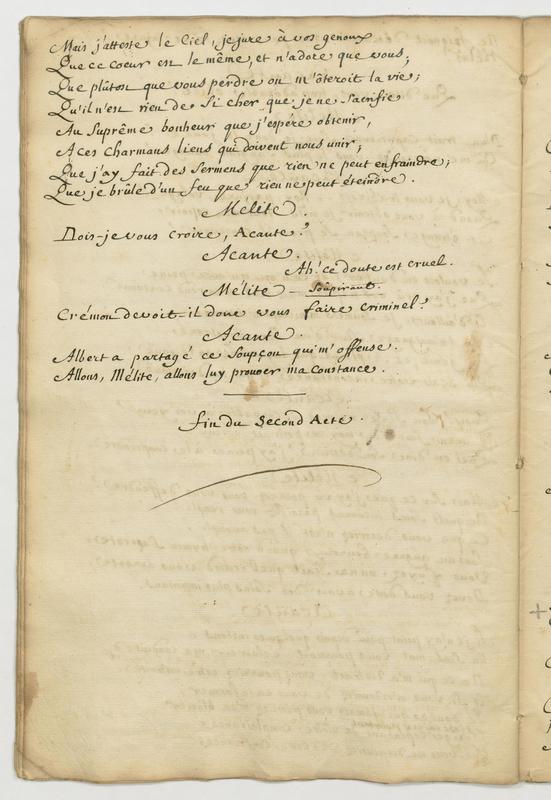 Mais j'atteste le Ciel, je jure à vos genoux
Que ce coeur est le même, et n'adore que vous;
Que plûton que vous perdre on m'ôteroit la vie;
Qu'il n'est rien de si cher que je ne sacrifie
Au suprême bonheur que j'espére obtenir,
A ces charmans liens qui doivent nous unir;
Que j'ay fait des sermens que rien ne peut enfraindre;
Que je brûle d'un feu que rien ne peut éteindre.
Mélite.
Dois-je vous croire, Acante?
Acante.
Ah! ce doute est cruel.
Mélite – soupirant.
Crémon devoit-il donc vous faire criminel?
Acante.
Albert a partagé ce soupçon qui m'offense.
Allons, Mélite, allons luy prouver ma constance.
fin du second Acte.